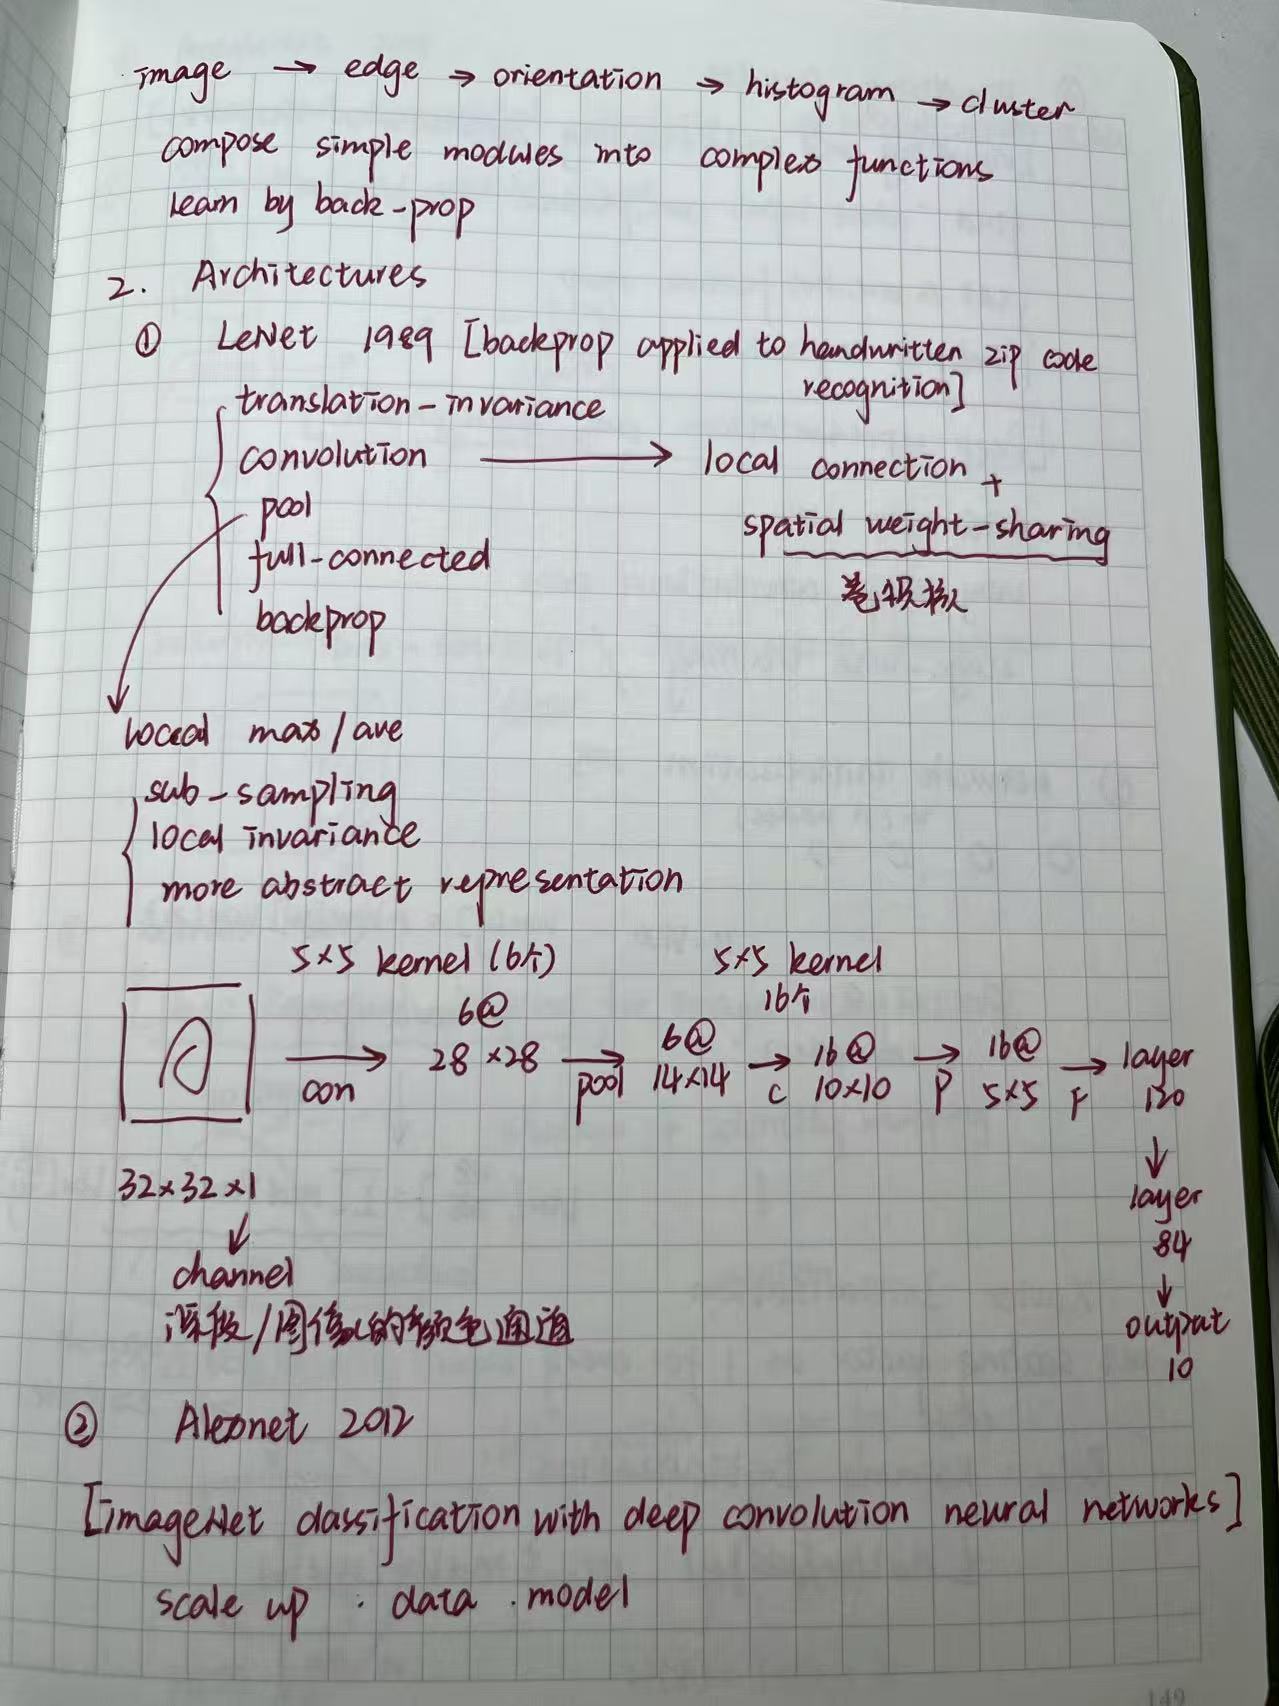 image → edge → orientation → histogram → cluster
compose simple modules into complex functions
learn by back-prop
2. Architectures
① LeNet 1989 [backprop applied to handwritten zip code
recognition]
translation-invariance
convolution → local connection +
pool
spatial weight-sharing
full-connected
卷积核
backprop
local max/ave
sub-sampling
local invariance
more abstract representation
5×5 kernel (6个) 5×5 kernel
16个
6@ 6@ 16@ 16@
→ 28×28 → 14×14 → 10×10 → 5×5 → layer
con pool C P F 120
32×32×1
↓
layer
84
channel
深度/图像的颜色通道
↓
output
10
② Alexnet 2012
[imageNet classification with deep convolution neural networks]
scale up : data . model